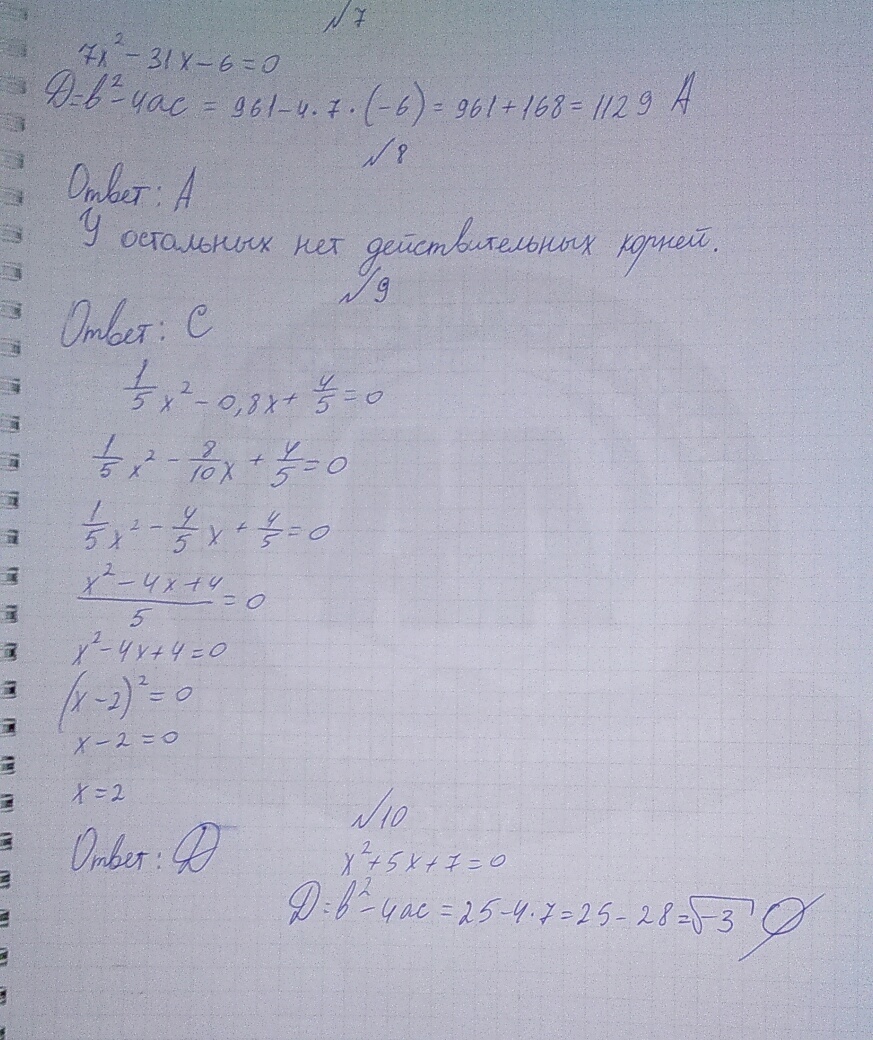 №7
7x² - 31x - 6 = 0
D = b² - 4ac = 961 - 4 · 7 · (-6) = 961 + 168 = 1129 A
№8
Ответ: A
У остальных нет действительных корней.
№9
Ответ: C
1/5 x² - 0,8x + 4/5 = 0
1/5 x² - 8/10 x + 4/5 = 0
1/5 x² - 4/5 x + 4/5 = 0
(x² - 4x + 4)/5 = 0
x² - 4x + 4 = 0
(x - 2)² = 0
x - 2 = 0
x = 2
№10
Ответ: D
x² + 5x + 7 = 0
D = b² - 4ac = 25 - 4 · 7 = 25 - 28 = √-3 ∅